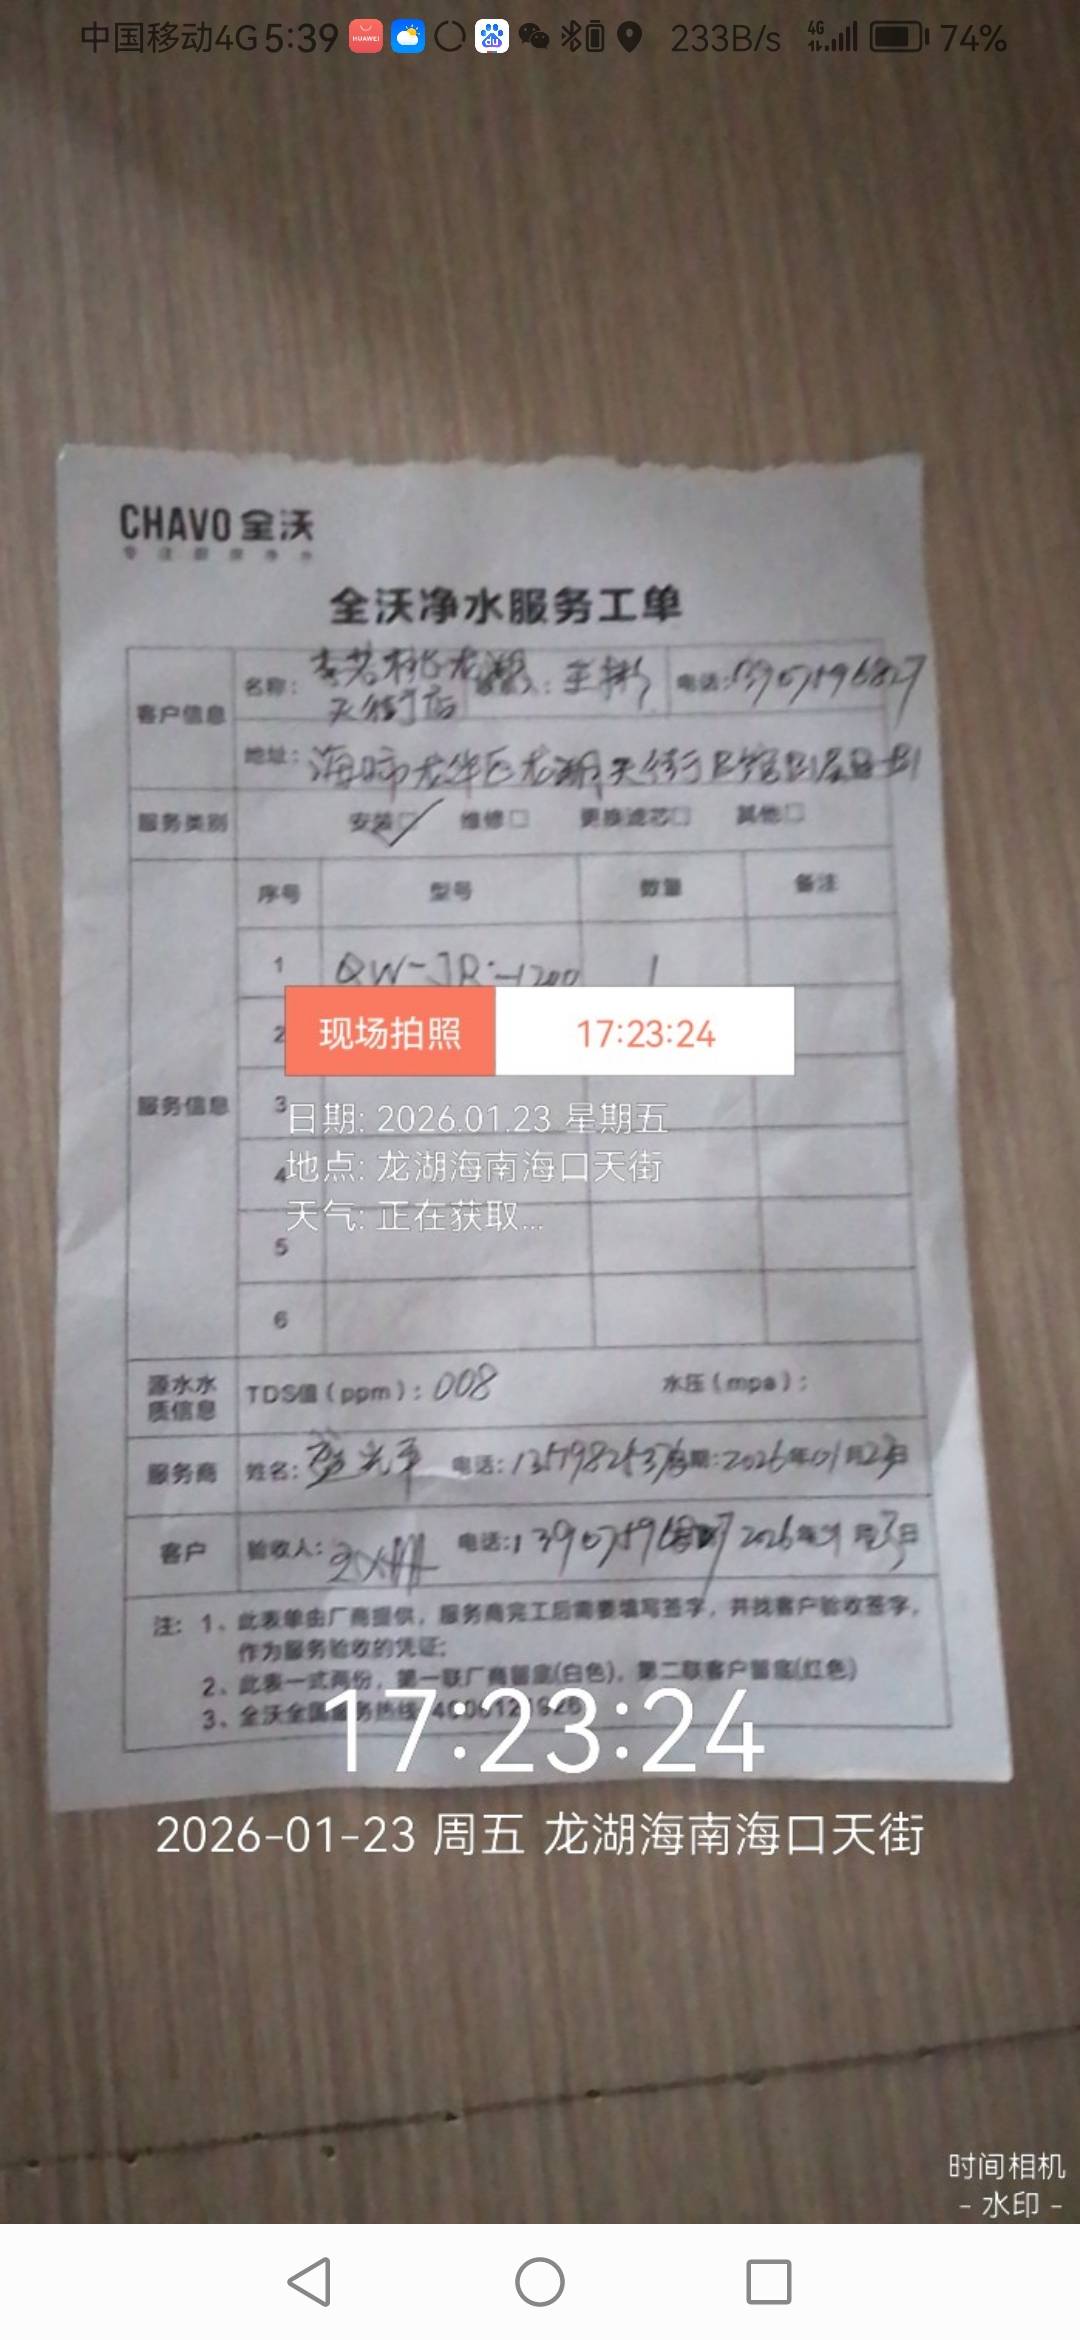 中国移动4G 5:39 HUAWEI du 233B/s 4G 74%
CHAVO 全沃
专注厨房净水
全沃净水服务工单
客户信息 名称: 龙湖天街店 : 王彬 电话:
地址: 海口市龙华区龙湖天街
服务类别 安装☑ 维修□ 更换滤芯□ 其他□
服务信息 序号 型号 数量 备注
1 QW-JR-1200 1
2
现场拍照 17:23:24
3
日期: 2026.01.23 星期五
4
地点: 龙湖海南海口天街
天气: 正在获取...
5
6
源水水质信息 TDS值(ppm): 008 水压(mpa):
服务商 姓名: 电话: 日期: 2026年01月23日
客户 验收人: 电话: 2026年 月 日
注: 1、此表单由厂商提供，服务商完工后需要填写签字，并找客户验收签字，
作为服务验收的凭证;
2、此表一式两份，第一联厂商留底(白色)，第二联客户留底(红色)
3、全沃全国服务热线
17:23:24
2026-01-23 周五 龙湖海南海口天街
时间相机
- 水印 -